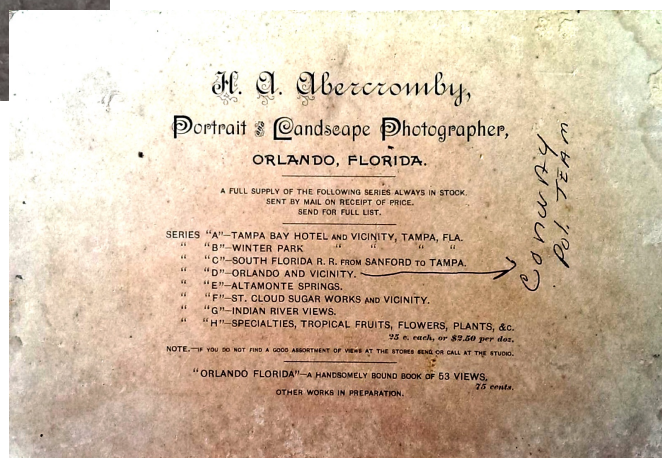 H. A. Abercromby,
Portrait & Landscape Photographer,
ORLANDO, FLORIDA.
A FULL SUPPLY OF THE FOLLOWING SERIES ALWAYS IN STOCK.
SENT BY MAIL ON RECEIPT OF PRICE.
SEND FOR FULL LIST.
SERIES "A"—TAMPA BAY HOTEL AND VICINITY, TAMPA, FLA.
" "B"—WINTER PARK " " " "
" "C"—SOUTH FLORIDA R. R. FROM SANFORD TO TAMPA.
" "D"—ORLANDO AND VICINITY.
" "E"—ALTAMONTE SPRINGS.
" "F"—ST. CLOUD SUGAR WORKS AND VICINITY.
" "G"—INDIAN RIVER VIEWS.
" "H"—SPECIALTIES, TROPICAL FRUITS, FLOWERS, PLANTS, &C.
25 c. each, or $2.50 per doz.
NOTE.—IF YOU DO NOT FIND A GOOD ASSORTMENT OF VIEWS AT THE STORES SEND OR CALL AT THE STUDIO.
"ORLANDO FLORIDA"—A HANDSOMELY BOUND BOOK OF 53 VIEWS,
75 cents.
OTHER WORKS IN PREPARATION.
CONWAY
Pol. TEAM